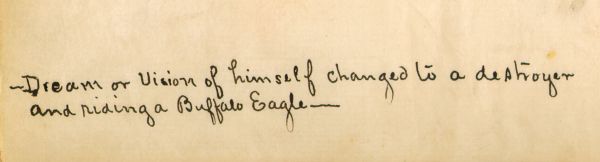 ~Dream or Vision of himself changed to a destroyer
and riding a Buffalo Eagle—